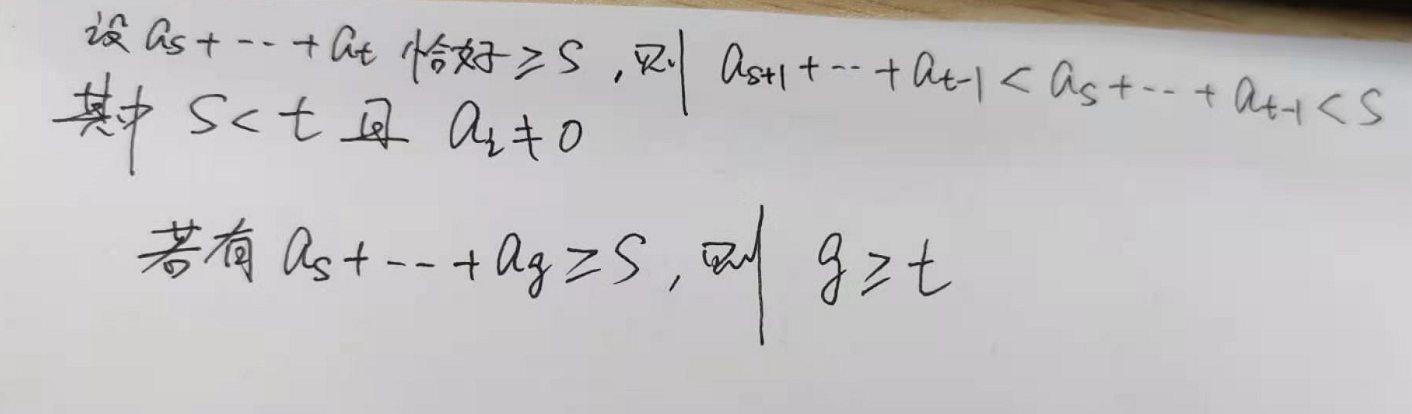 设 a_s + ⋯ + a_t 恰好 ≥ S , 则 a_{s+1} + ⋯ + a_{t-1} < a_s + ⋯ + a_{t-1} < S
其中 S < t 且 a_i ≠ 0
若有 a_s + ⋯ + a_g ≥ S , 则 g ≥ t